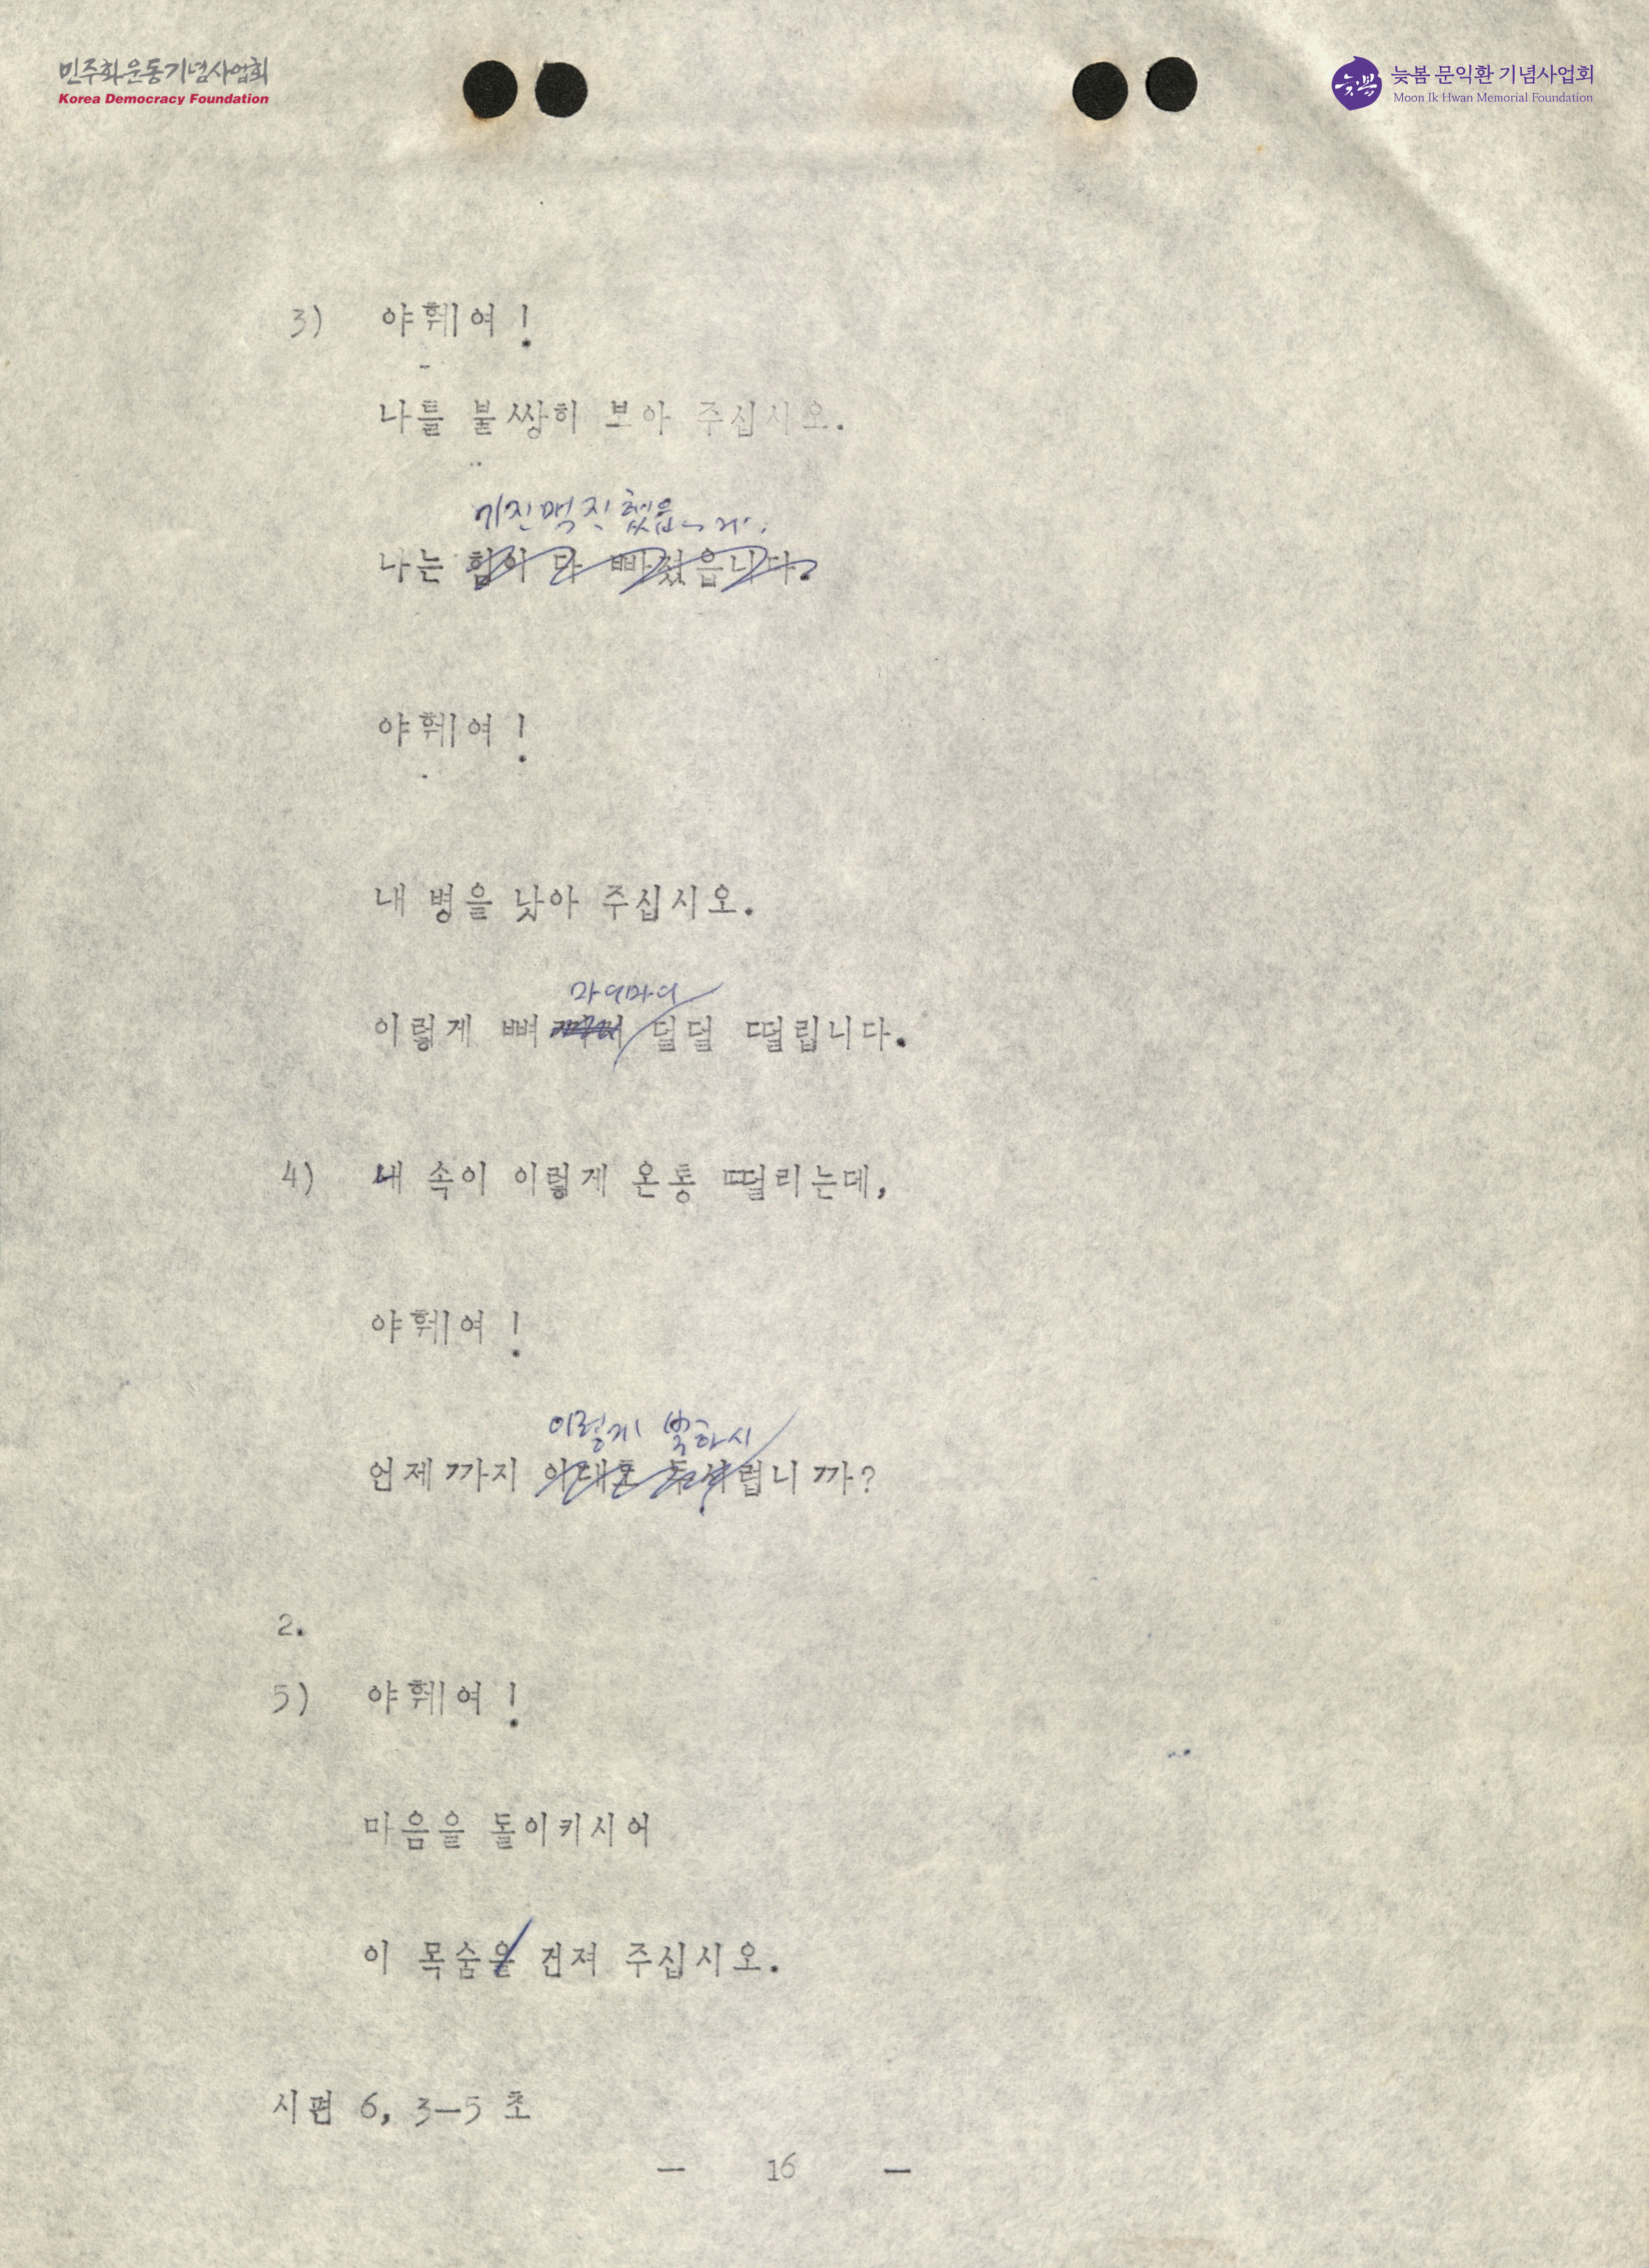 민주화운동기념사업회
Korea Democracy Foundation
늦봄
늦봄 문익환 기념사업회
Moon Ik Hwan Memorial Foundation
3) 야훼여!
나를 불쌍히 보아 주십시오.
기진맥진했읍니다.
나는 힘이 다 빠졌읍니다.
야훼여!
내 병을 낫아 주십시오.
마디마디
이렇게 뼈 덜덜 떨립니다.
4) 내 속이 이렇게 온통 떨리는데,
야훼여!
이렇게 박하시
언제까지 이대로 럽니까?
2.
5) 야훼여!
마음을 돌이키시어
이 목숨을 건져 주십시오.
시편 6, 3—5 초
— 16 —